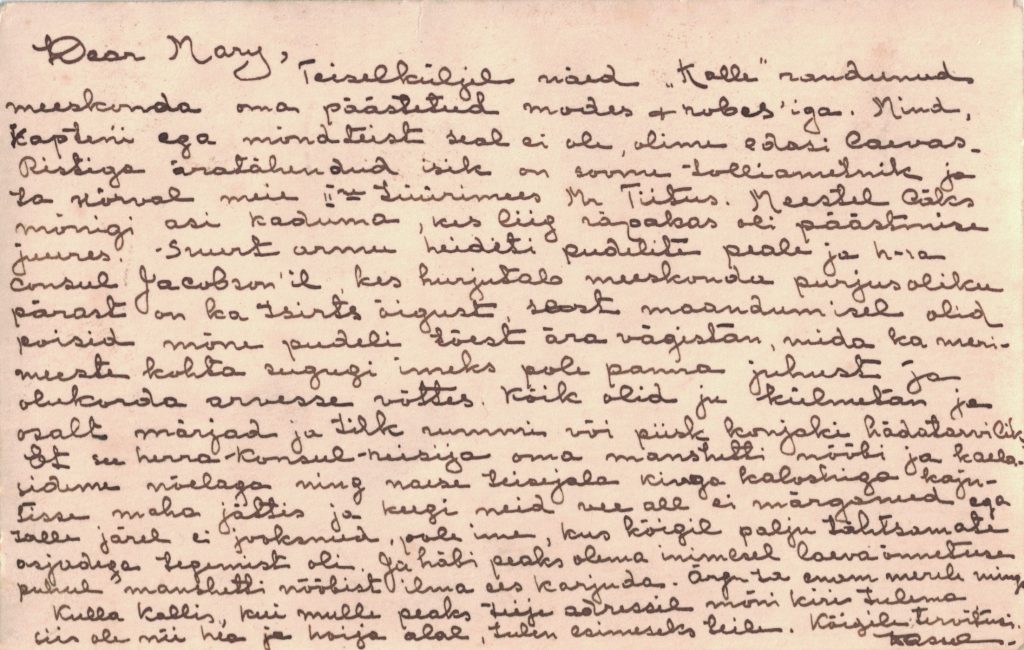 Dear Mary,
Teiselküljel näed „Kalle" randunud
meeskonda oma päästetud modes + robes'iga. Mind,
kapteni ega mõndteist seal ei ole, olime edasi laevas.
Ristiga äratähendud isik on soome tolliametnik ja
ta kõrval meie II se tüürimees Mr Tiitus. Meestel läks
mõnigi asi kaduma, kes liig räpakas oli päästmise
juures. Suurt armu heideti pudelite peale ja h-ra
Consul Jacobson'il, kes hurjutala meeskonda purjusoliku
pärast on ka tsirts õigust, sest maandumisel olid
poisid mõne pudeli tõest ära vägistan, mida ka meri-
meeste kohta sugugi imeks pole panna juhust ja
olukorda arvesse võttes. Kõik olid ju külmetan ja
osalt märjad ja tilk rummi või piisk konjaki hädatarvilik
Et see herra-konsul-reisija oma manshetti nööbi ja kaela-
sideme nõelaga ning naise teisejala kinga kaloshiga kaju-
tisse maha jättis ja keegi neid vee all ei märganud ega
talle järel ei jooksnud, pole ime, kus kõigil palju tähtsamate
asjadega tegemist oli. Ja häbi peaks olema inimesel laevaõnnetuse
puhul manshetti nööbist ilma ees karjuda. Ärgu ta enam merele mingu
Kulla Kallis, kui mulle peaks Teije adressil mõni kiri tulema
siis ole nii hea ja hoija alal, tulen esimeseks teile. Kõigile tervitusi.